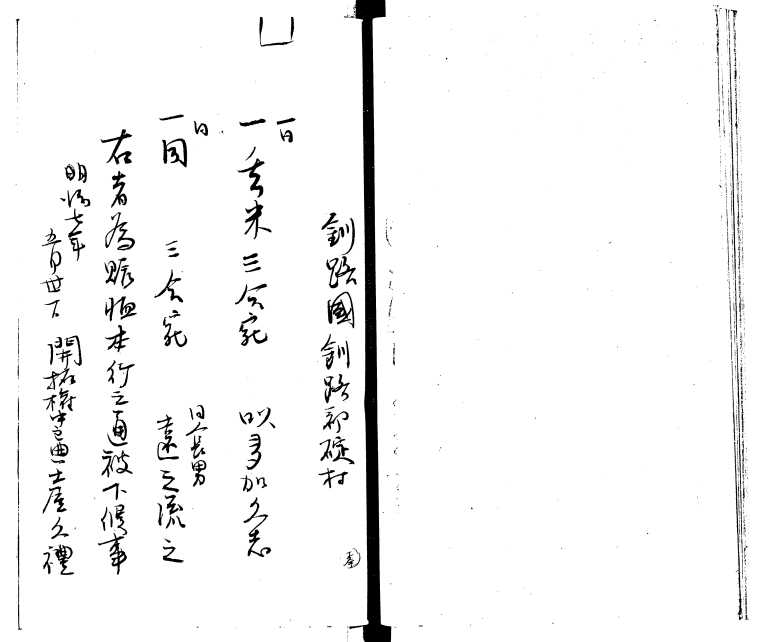 釧路國釧路郡碇村
一日
一玄米三合宛 叭多加久志
日
一同 三合宛 同人長男 遠之流之
右者為賑恤本行之通被下候事
明治七年
五月廿一日 開拓権中主典土屋久禮